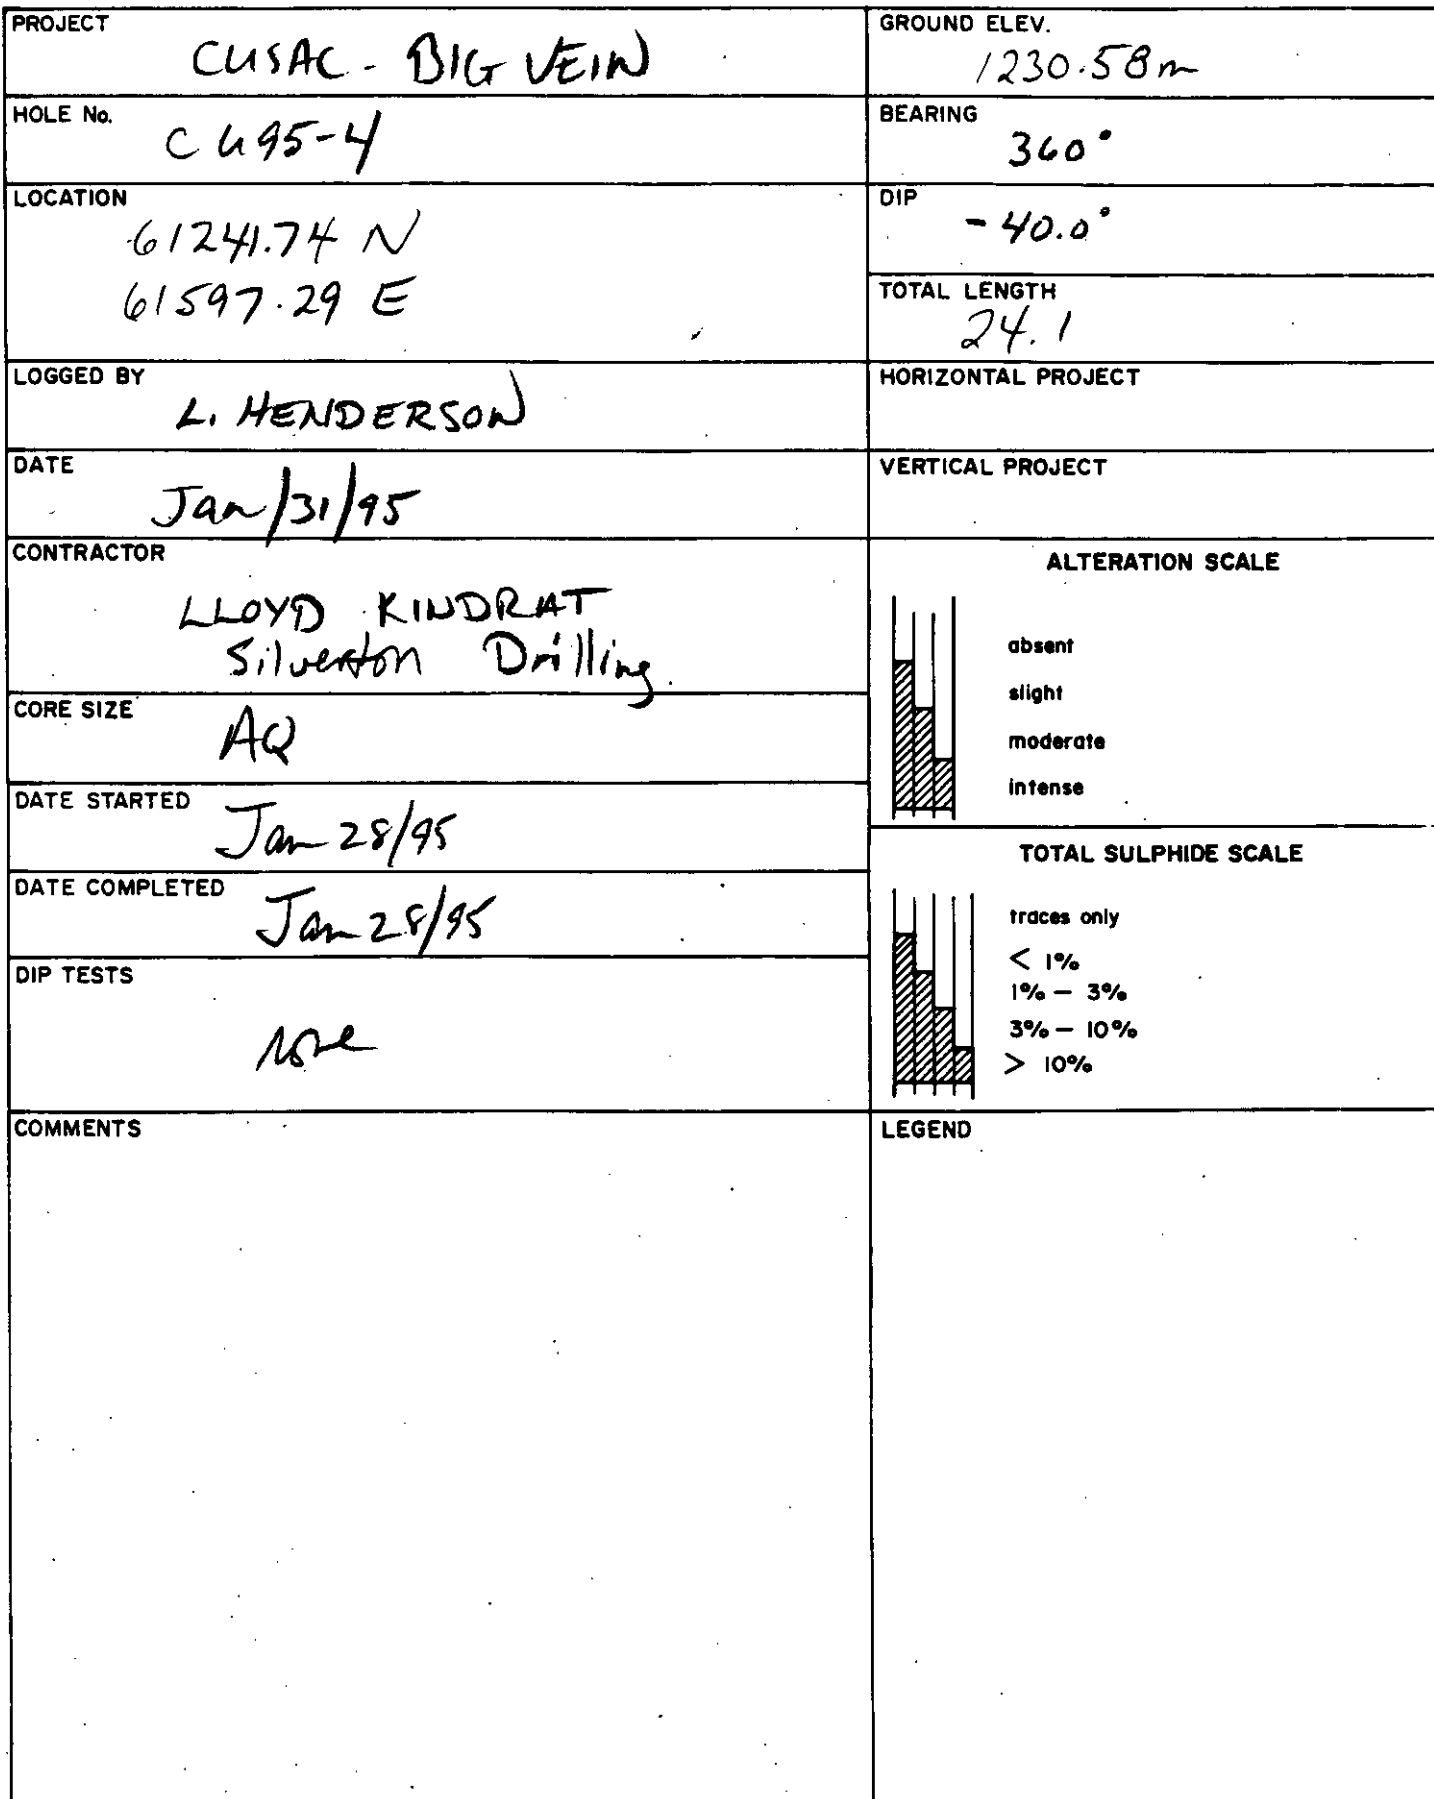 PROJECT
CUSAC - BIG VEIN
HOLE No.
CU95-4
LOCATION
61241.74 N
61597.29 E
LOGGED BY
L. HENDERSON
DATE
Jan/31/95
CONTRACTOR
LLOYD KINDRAT
Silverton Drilling
CORE SIZE
AQ
DATE STARTED
Jan 28/95
DATE COMPLETED
Jan 28/95
DIP TESTS
None
COMMENTS
GROUND ELEV.
1230.58m
BEARING
360°
DIP
-40.0°
TOTAL LENGTH
24.1
HORIZONTAL PROJECT
VERTICAL PROJECT
ALTERATION SCALE
absent
slight
moderate
intense
TOTAL SULPHIDE SCALE
traces only
< 1%
1% — 3%
3% — 10%
> 10%
LEGEND